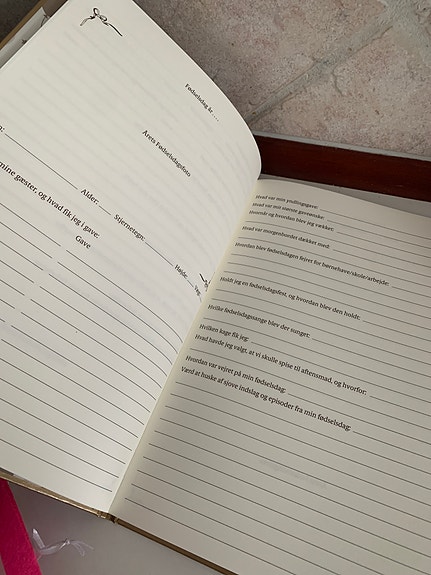 Fødselsdag år ....
Årets Fødselsdagsfoto
Alder:
Stjernetegn:
Højde:
mine gæster, og hvad fik jeg i gave:
Gave
Hvad var min yndlingsgave:
Hvad var mit største gaveønske:
Hvornår og hvordan blev jeg vækket:
Hvad var morgenbordet dækket med:
Hvordan blev fødselsdagen fejret for børnehave/skole/arbejde:
Holdt jeg en fødselsdagsfest, og hvordan blev den holdt:
Hvilke fødselsdagssange blev der sunget:
Hvilken kage fik jeg:
Hvad havde jeg valgt, at vi skulle spise til aftensmad, og hvorfor:
Hvordan var vejret på min fødselsdag:
Værd at huske af sjove indslag og episoder fra min fødselsdag: